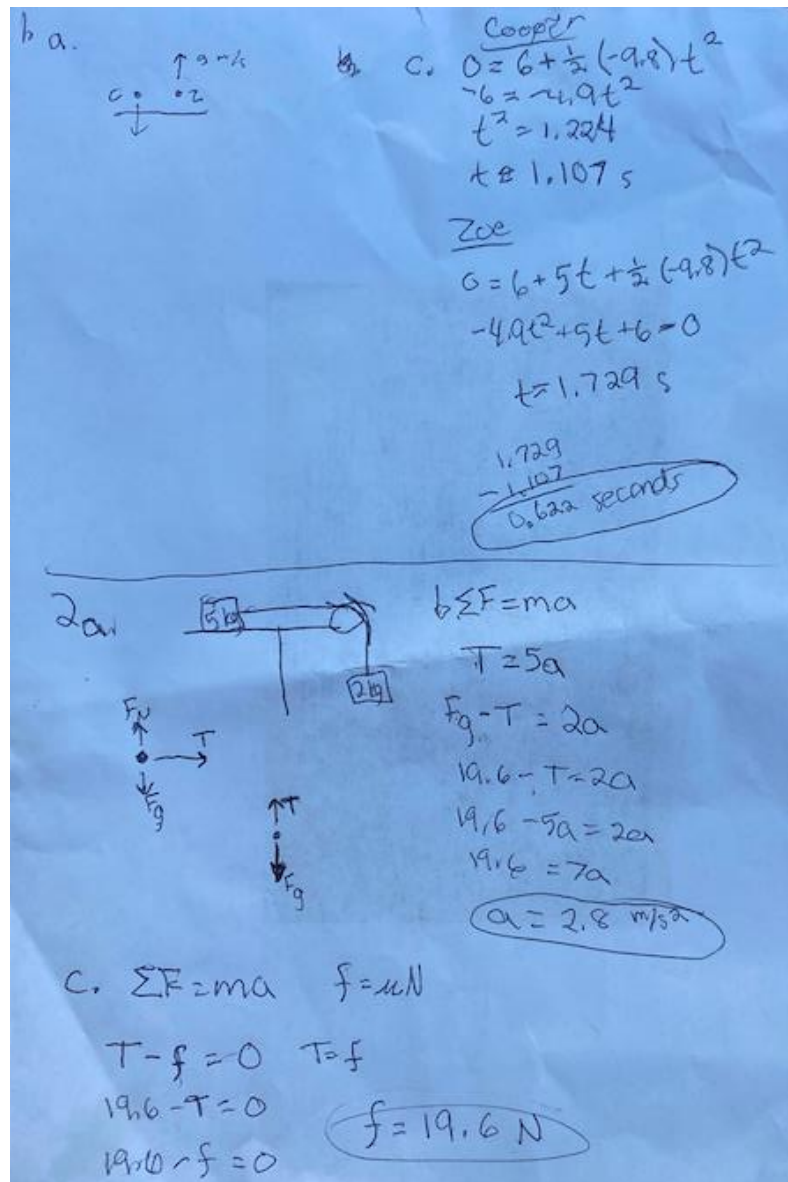 a.
C
Z
c. Cooper
0 = 6 + ½ (-9.8) t²
-6 = -4.9t²
t² = 1.224
t ≈ 1.107 s
Zoe
0 = 6 + 5t + ½ (-9.8) t²
-4.9t² + 5t + 6 = 0
t = 1.729 s
1.729
- 1.107
0.622 seconds
2a.
5 kg
2 kg
F_N
T
F_g
T
F_g
b ΣF = ma
T = 5a
F_g - T = 2a
19.6 - T = 2a
19.6 - 5a = 2a
19.6 = 7a
a = 2.8 m/s²
c. ΣF = ma f = μN
T - f = 0 T = f
19.6 - T = 0
19.6 - f = 0
f = 19.6 N